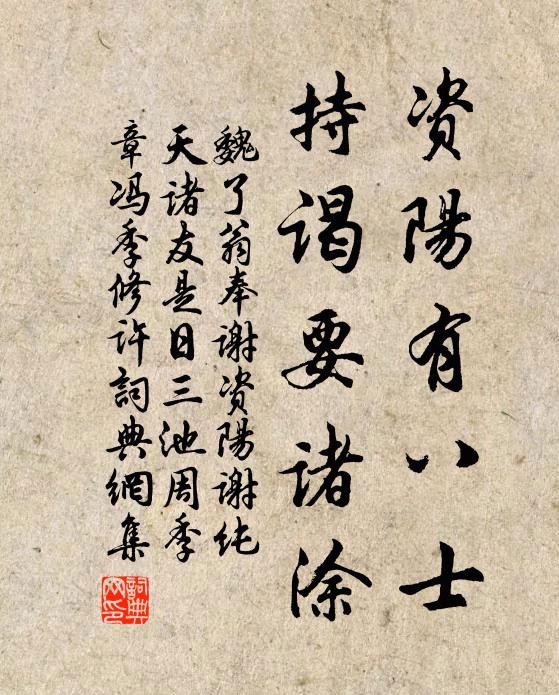 资陽有八士
持谒要诸涂
魏了翁奉谢资陽谢纯
天诸友是日三池周季
章冯季修许詞典網集
詞典網印